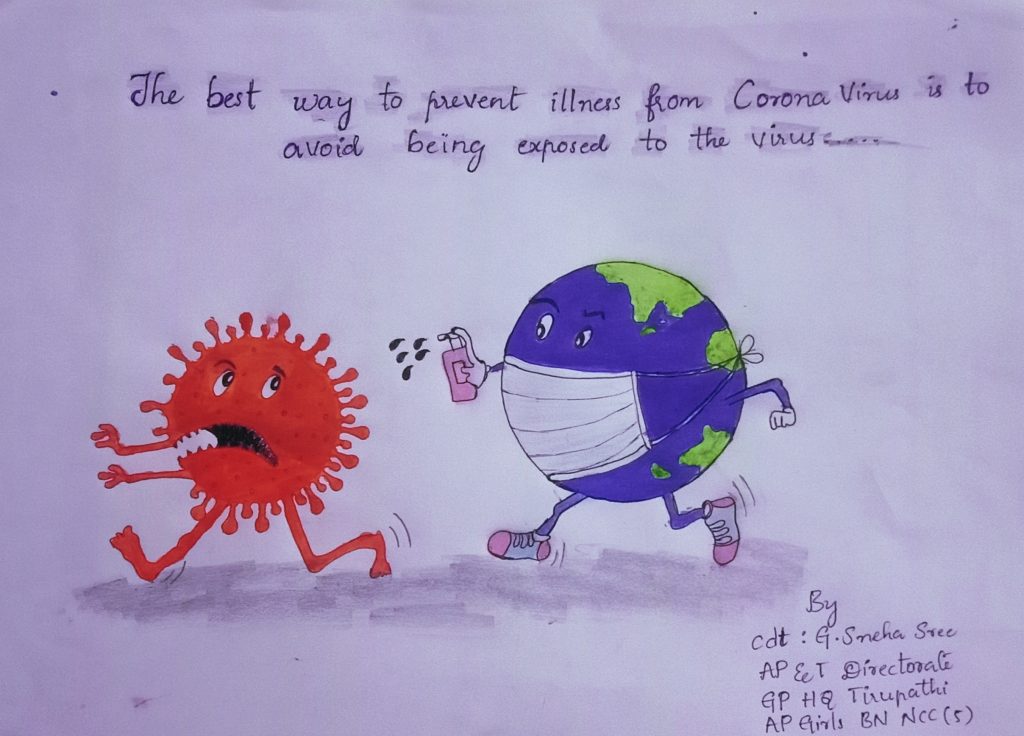 The best way to prevent illness from Corona Virus is to
avoid being exposed to the virus......
By
cdt : G. Sneha Sree
AP & T Directorate
GP HQ Tirupathi
AP Girls BN NCC (5)